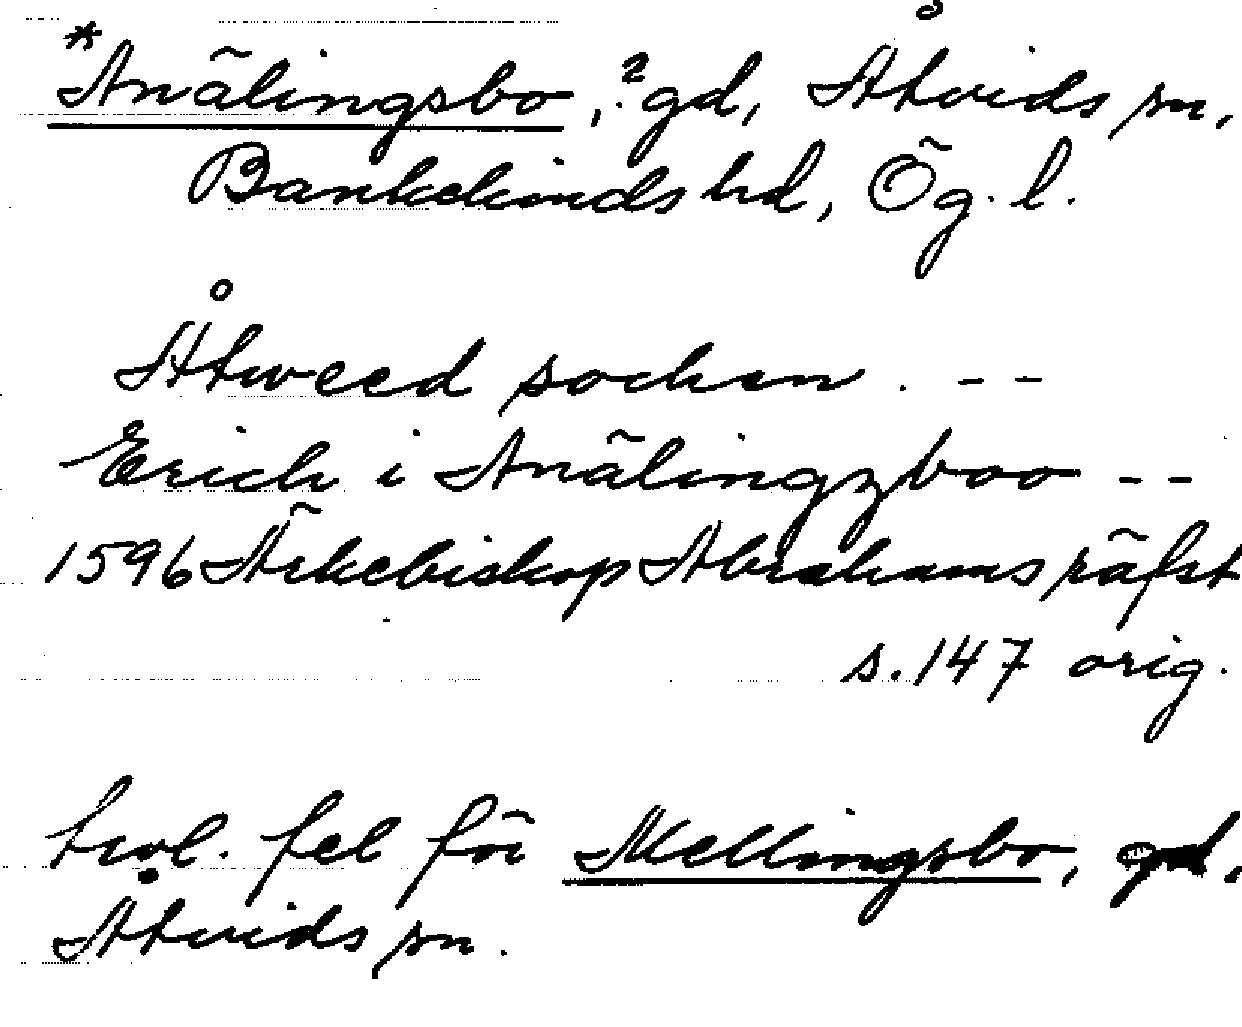 *Anälingsbo, ? gd, Åtvids sn,
Bankekinds hd, Ög. l.
Åtweed sochen . - -
Erich i Anälingzboo - -
1596 Ärkebiskop Abrahams räfst
s. 147 orig.
trol. fel för Mellingsbo, gd,
Åtvids sn.